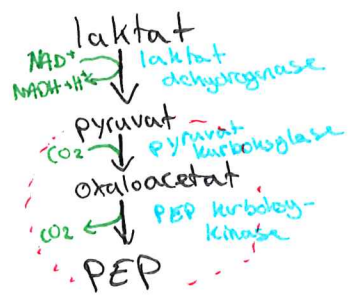 laktat
NAD+ laktat
NADH+H+ dehydroginase
pyruvat
CO2 pyruvat
karboksylase
oxaloacetat
CO2 PEP karboxy-
kinase
PEP